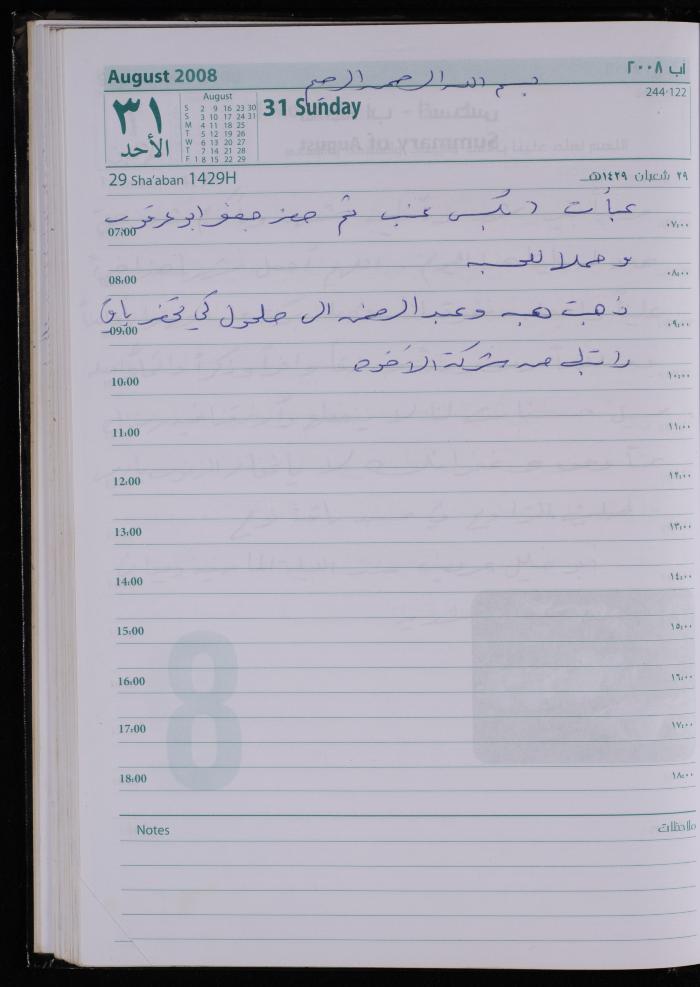 August 2008
بسم الله الرحمن الرحيم
آب ٢٠٠٨
244-122
٣١
الأحد
August
S 2 9 16 23 30
S 3 10 17 24 31
M 4 11 18 25
T 5 12 19 26
W 6 13 20 27
T 7 14 21 28
F 1 8 15 22 29
31 Sunday
29 Sha'aban 1429H
٢٩ شعبان ١٤٢٩هـ
عبأت بكس عنب ثم حضر جعفر ابو عرقوب
07:00
٠٧:٠٠
وحملا للحسبه
08:00
٠٨:٠٠
ذهبت هبه وعبد الرحمن الى حلحول كي تحضر باقي
09:00
٠٩:٠٠
راتبي من شركة الأخوه
10:00
١٠:٠٠
11:00
١١:٠٠
12:00
١٢:٠٠
13:00
١٣:٠٠
14:00
١٤:٠٠
15:00
١٥:٠٠
16:00
١٦:٠٠
17:00
١٧:٠٠
18:00
١٨:٠٠
Notes
ملاحظات